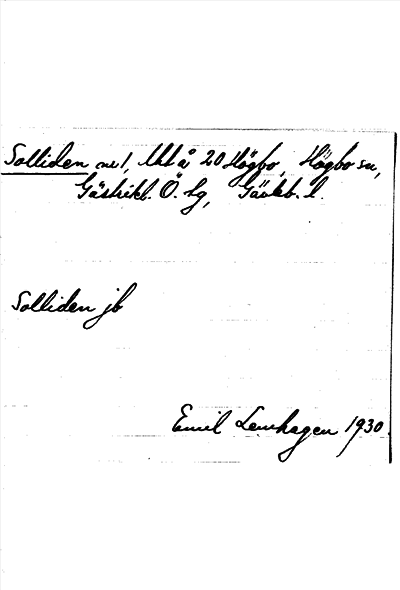 Solliden nr 1, lht å 20 Högbo, Högbo sn,
Gästrikl. Ö. hg, Gävleb. l.
Solliden jb
Emil Lemhagen 1930.